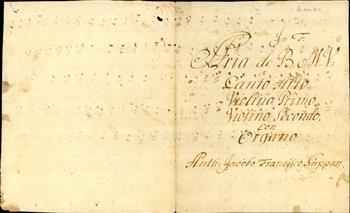 In F.
Aria de B. M. V.
Canto Alto
Violino Primo
Violino Secondo.
con
Organo
Auth. Jacobo Francisco